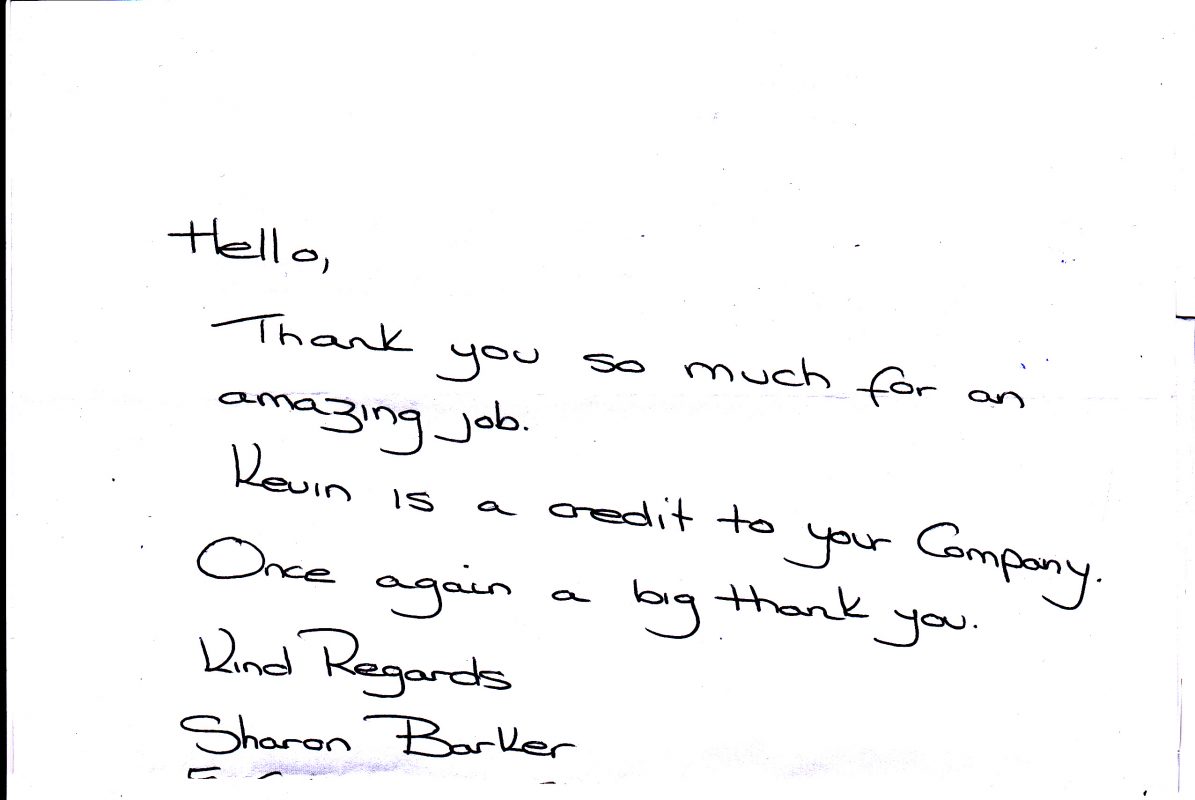 Hello,
Thank you so much for an
amazing job.
Kevin is a credit to your Company.
Once again a big thank you.
Kind Regards
Sharon Barker